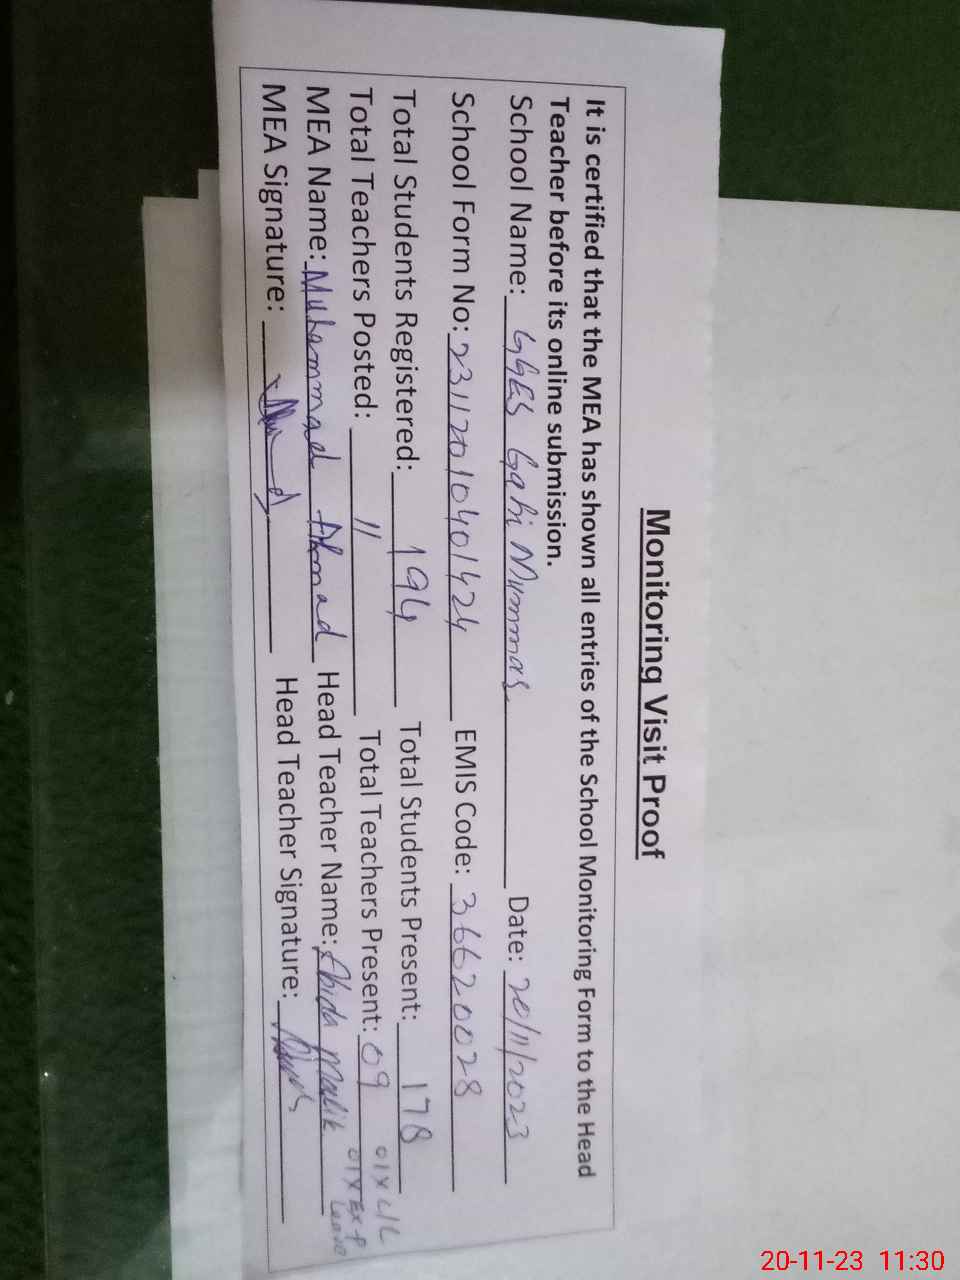 Monitoring Visit Proof
It is certified that the MEA has shown all entries of the School Monitoring Form to the Head
Teacher before its online submission.
School Name: GGES Gahi Mummas, Date: 20/11/2023
School Form No: 23112010401424 EMIS Code: 36620028
Total Students Registered: 194 Total Students Present: 178
Total Teachers Posted: 11 Total Teachers Present: 09 01XC/L
01XEX-P Leave
MEA Name: Muhammad Ahmad Head Teacher Name: Abida Malik
MEA Signature: Head Teacher Signature:
20-11-23 11:30